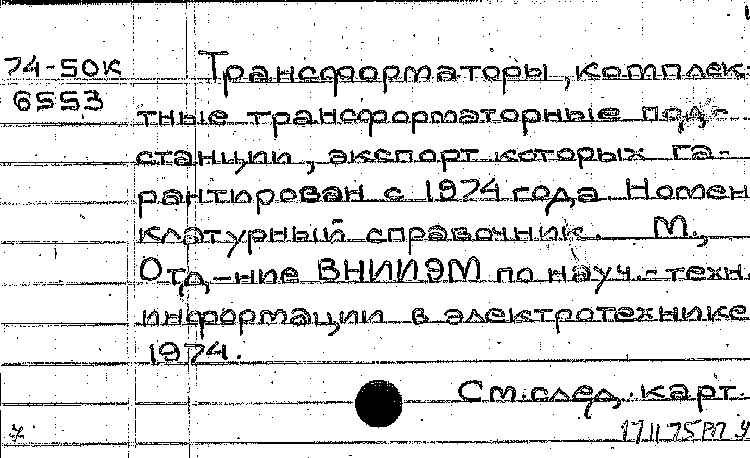 74-50К Трансформаторы, комплек-
6553 тные трансформаторные под-
станции, экспорт которых га-
рантирован с 1974 года Номен
клатурный справочник. М.,
Отд-ние ВНИИЭМ по науч.-техн.
информации в электротехнике
1974.
См. след. карт.
17 11 75